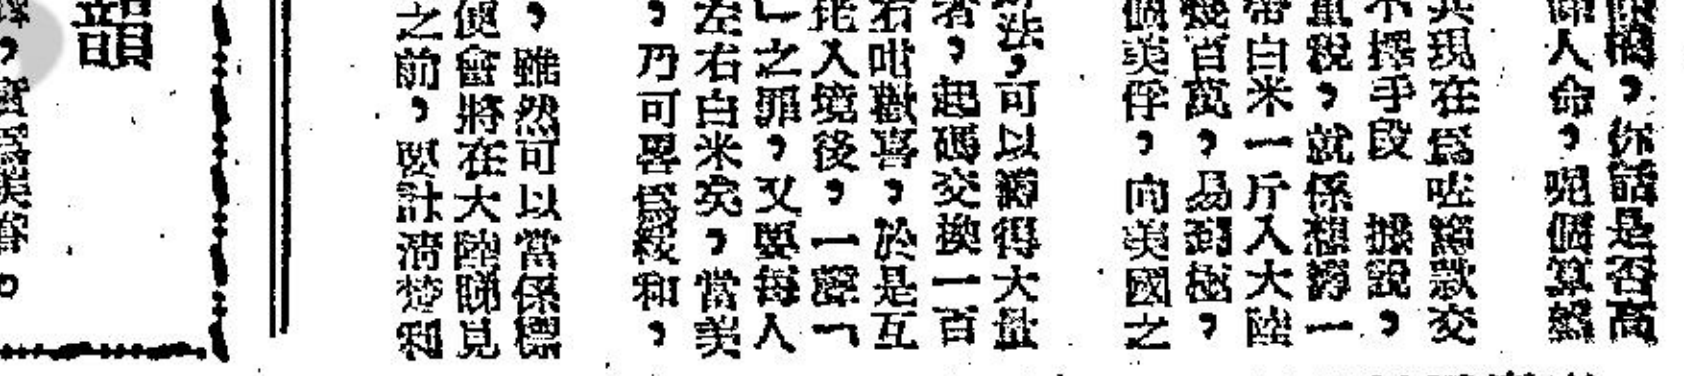 橋，你話是否高
人命，呢個算盤
現在爲咗籌款交
不擇手段 據說，
重稅，就係想籌一
帶白米一斤入大陸
幾百萬，易到極，
個美俘，向美國之
法，可以籌得大量
者，起碼交換一百
右咁歡喜，於是互
批入境後，一聲「
」之罪，又要每人
左右白米矣，當美
，乃可畧爲緩和，
，雖然可以當係標
便會將在大陸睇見
之前，要計清楚利
韻
，實爲